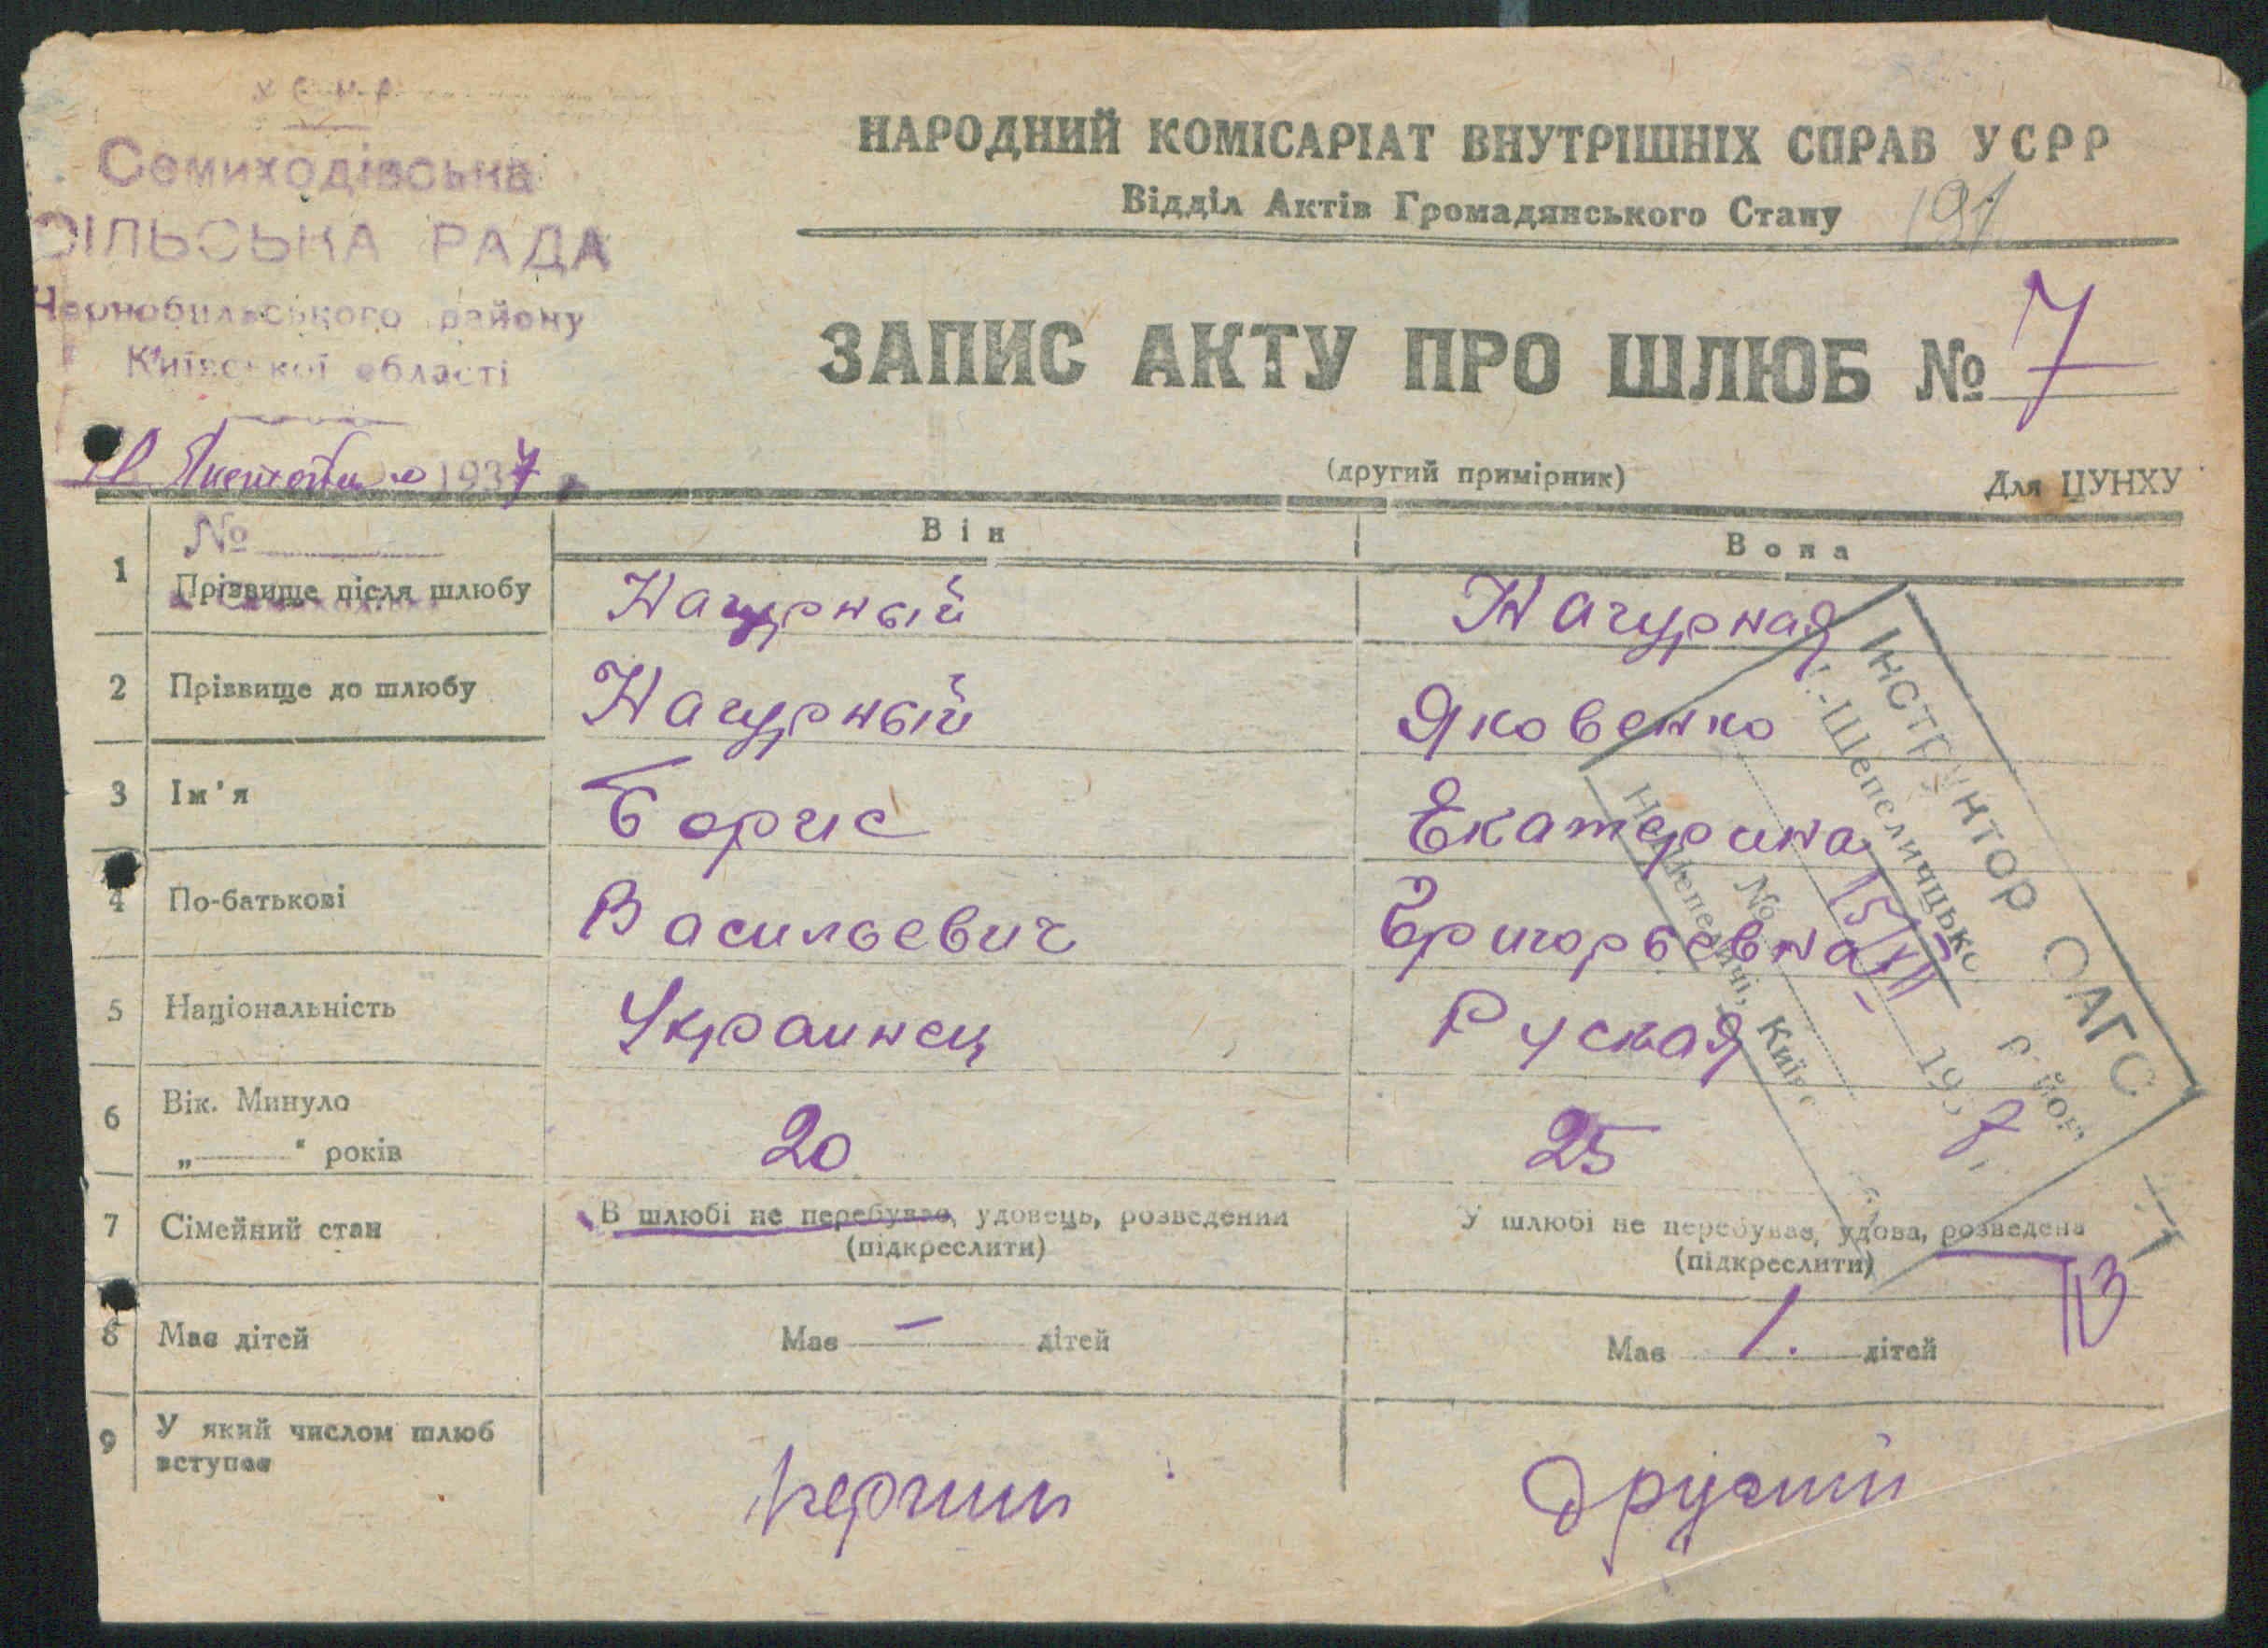 УСРР
Семиходівська
СІЛЬСЬКА РАДА
Чернобильського району
Київської області
1937
№
НАРОДНИЙ КОМІСАРІАТ ВНУТРІШНІХ СПРАВ УСРР
Відділ Актів Громадянського Стану
191
ЗАПИС АКТУ ПРО ШЛЮБ № 7
(другий примірник) Для ЦУНХУ
Він Вона
1 Прізвище після шлюбу Нагурный Нагурная
2 Прізвище до шлюбу Нагурный Яковенко
3 Ім'я Борис Екатерина
4 По-батькові Васильевич Григорьевна
5 Національність Украинец Руская
6 Вік. Минуло
„ “ років 20 25
7 Сімейний стан В шлюбі не перебуває, удовець, розведений У шлюбі не перебуває, удова, розведена
(підкреслити) (підкреслити)
8 Має дітей Має — дітей Має 1. дітей
9 У який числом шлюб
вступає перший другий
ІНСТРУКТОР ОАГС
Н.-Шепелицько
№ 15/XII 1937